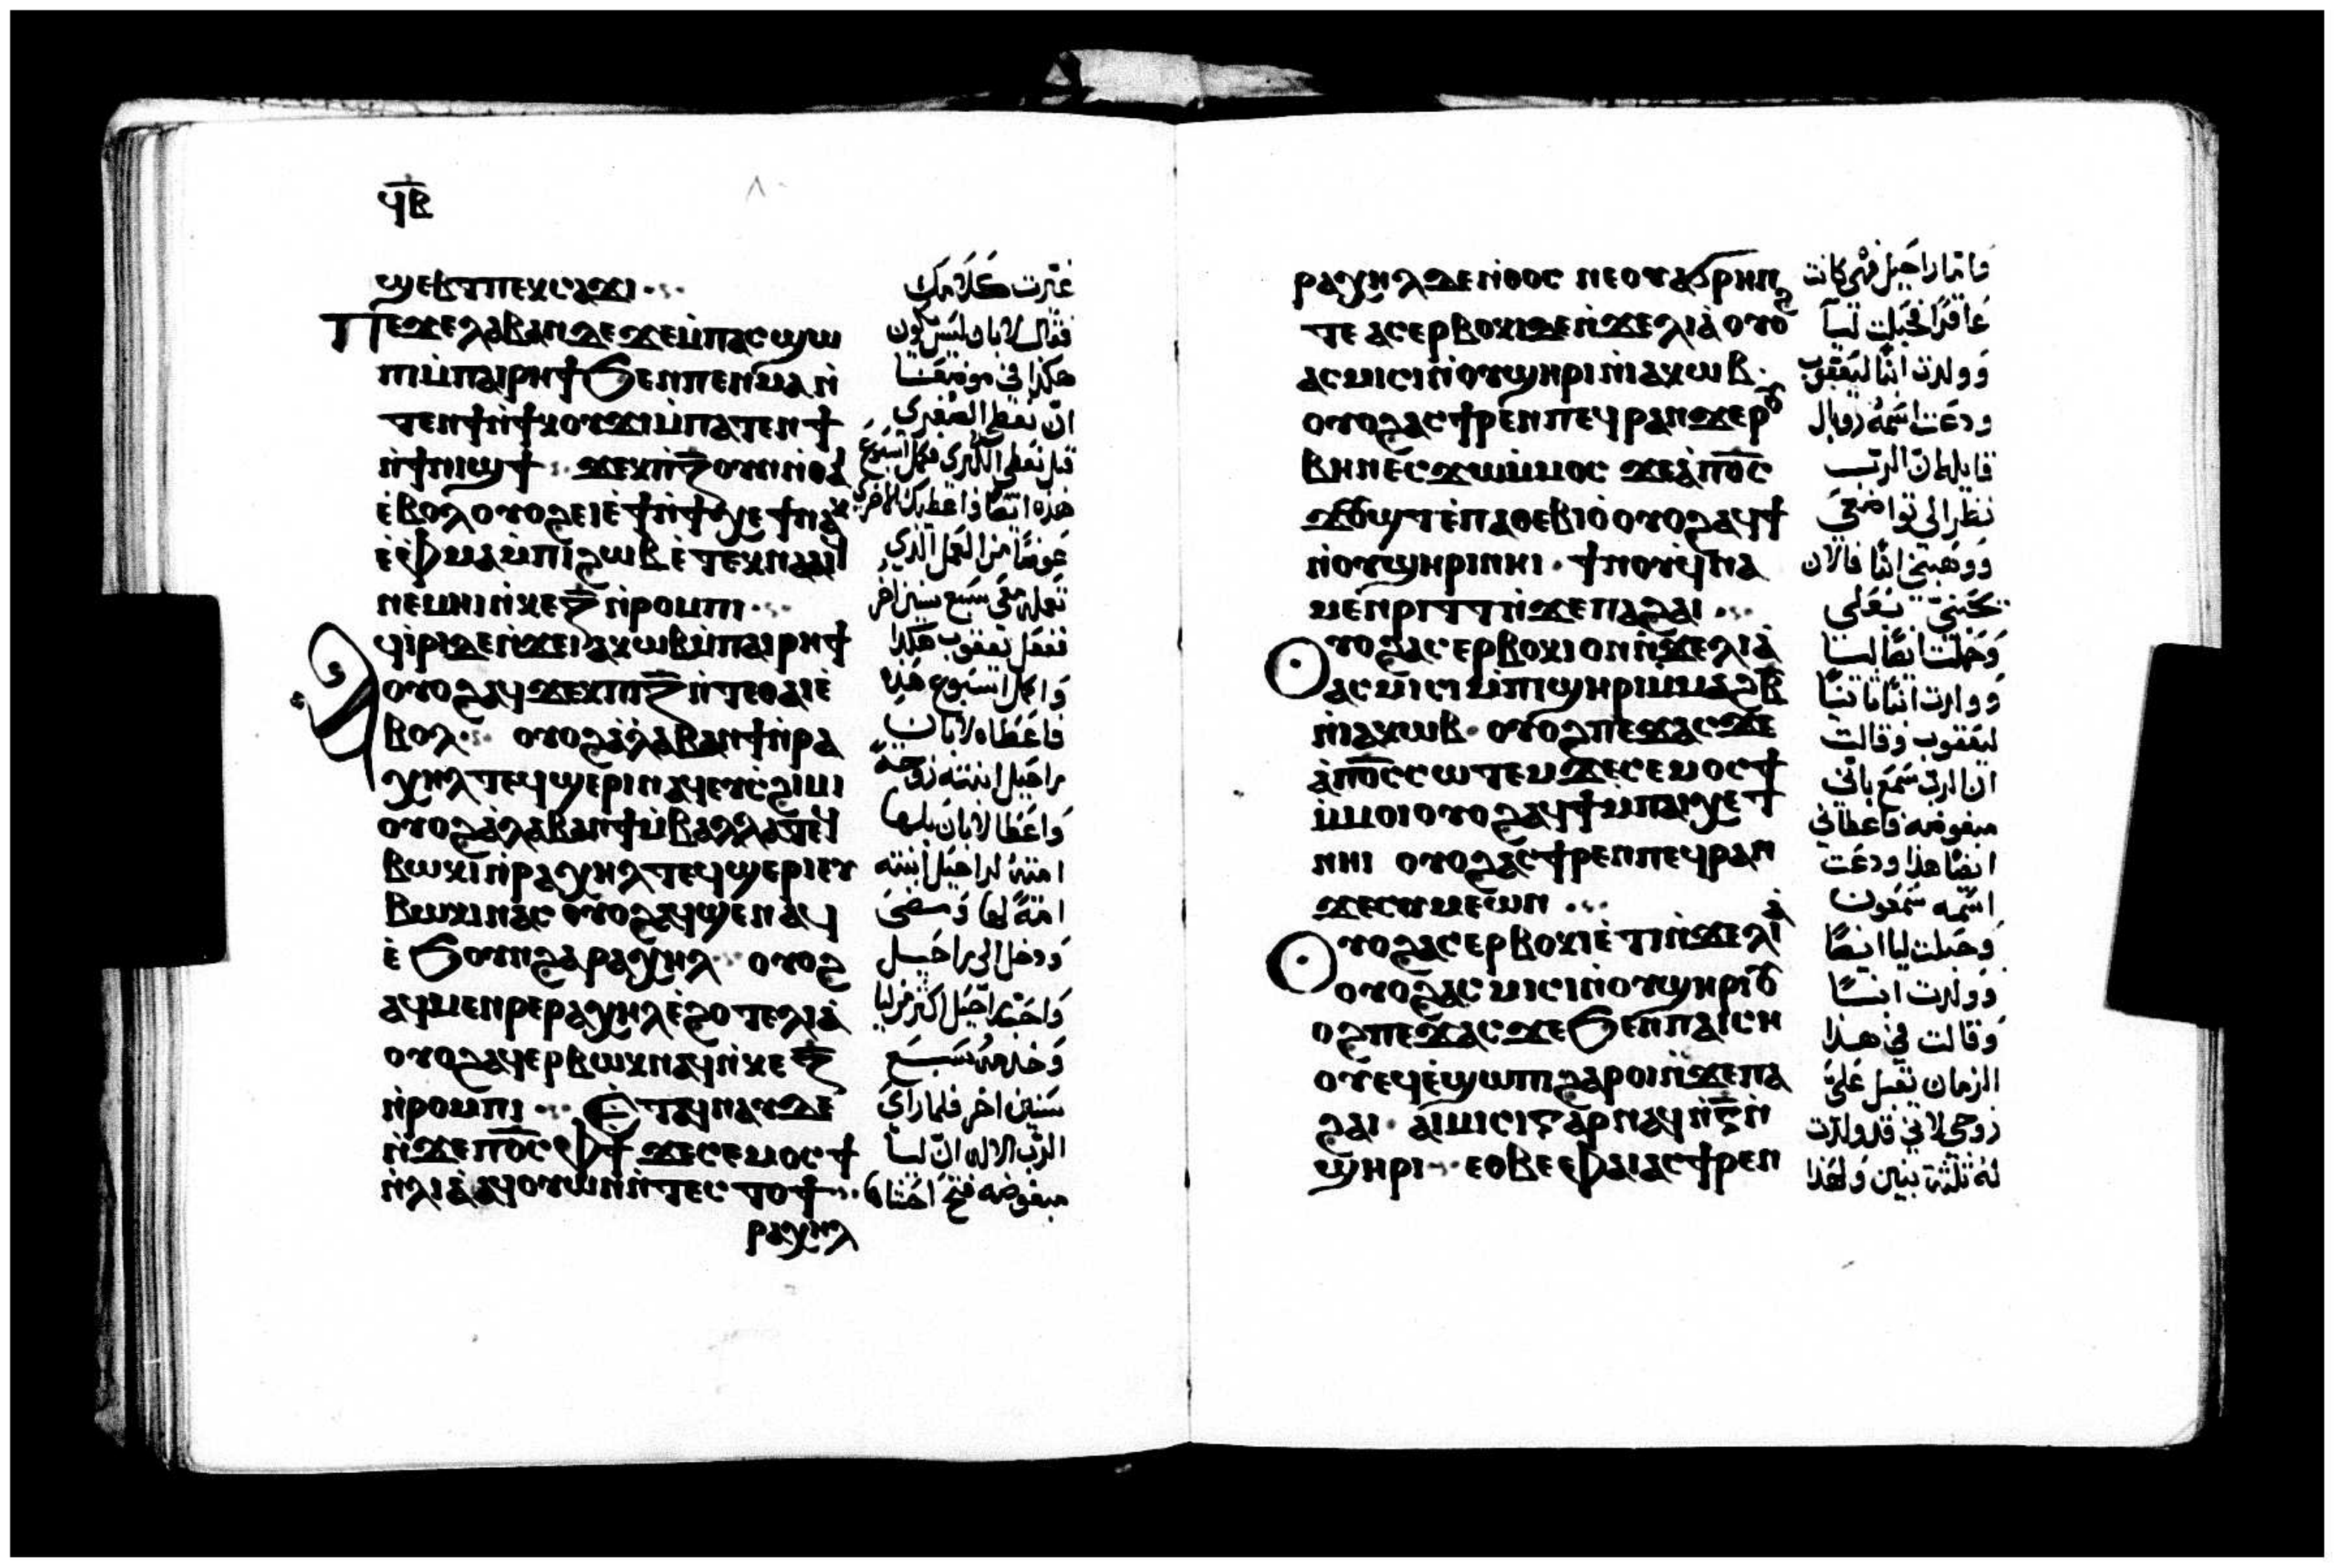 ϥⲃ
ϣⲉⲃⲧⲡⲉⲕⲥⲁϫⲓ
ⲡⲉϫⲉⲗⲁⲃⲁⲛⲇⲉϫⲉⲙ̀ⲡⲁⲥϣⲱ
ⲡⲓⲙ̀ⲡⲁⲓⲣⲏϯϧⲉⲛⲡⲉⲛⲙⲁⲛ̀
ⲧⲉⲛϯⲛ̀ϯⲕⲟⲩϫⲓⲙ̀ⲡⲁⲧⲉⲛϯ
ⲛ̀ϯⲛⲓϣϯ
ⲉ̀ⲃⲟⲗⲟⲩⲟϩⲉⲓⲉ̀ϯⲛ̀ϯⲭⲉϯⲛⲁⲕ
ⲉ̀ⲫⲙⲁⲙ̀ⲡⲓϩⲱⲃⲉ̀ⲧⲉⲕⲛⲁⲁⲓϥ
ⲛⲉⲙⲏⲓⲛ̀ⲕⲉⲍ̅ⲛ̀ⲣⲟⲙⲡⲓ
ⲁϥⲓⲣⲓⲇⲉⲛ̀ϫⲉⲓⲁⲕⲱⲃⲙ̀ⲡⲁⲓⲣⲏϯ
ⲟⲩⲟϩⲁϥϫⲉⲕⲡⲓⲍ̅ⲛ̀ⲧⲉⲑⲁⲓⲉ̀
ⲃⲟⲗ ⲟⲩⲟϩⲁ̀ⲗⲁⲃⲁⲛϯⲛ̀ⲣⲁ
ⲭⲏⲗⲧⲉϥϣⲉⲣⲓⲛⲁϥⲉⲩⲥ̀ϩⲓⲙⲓ
ⲟⲩⲟϩⲁ̀ⲗⲁⲃⲁⲛϯⲙ̀ⲃⲁⲗⲗⲁⲧⲉϥ
ⲃⲱⲕⲓⲛ̀ⲣⲁⲭⲏⲗⲧⲉϥϣⲉⲣⲓⲉⲩ
ⲃⲱⲕⲓⲛⲁⲥ ⲟⲩⲟϩⲁϥϣⲉⲛⲁϥ
ⲉ̀ϧⲟⲩⲛϩⲁⲣⲁⲭⲏⲗ ⲟⲩⲟϩ
ⲁϥⲙⲉⲛⲣⲉⲣⲁⲭⲏⲗⲉ̀ϩⲟⲧⲉⲗⲓⲁ̀
ⲟⲩⲟϩⲁϥⲉⲣⲃⲱⲕⲛⲁϥⲛ̀ⲕⲉⲍ̅
ⲛ̀ⲣⲟⲙⲡⲓ ⲉ̀ⲧⲁϥⲛⲁⲩⲇⲉ
ⲛ̀ϫⲉⲡⲟ̅ⲥ̅ⲫϯ ϫⲉⲥⲉⲙⲟⲥϯ
ⲛ̀ⲗⲓⲁ̀ⲁϥⲟⲩⲱⲛⲛ̀ⲧⲉⲥⲧⲟϯ
ⲣⲁⲭⲏⲗ
غيرت كلامك
فقال لابان ليس يكون
هكذا في موضعنا
ان نعطي الصغري
قبل نعطي الكبري فكمل اسبوع
هذه ايضا واعطيك الاخري
عوضا من العمل الذي
تعمله معي سبع سنين اخر
ففعل يعقوب هكذا
واكمل اسبوع هذه
فاعطاه لابان
راحيل ابنته زوجة
واعطا لابان بلها
امته لراحيل ابنته
امة لها ومضى
ودخل الى راحيل
واحب راحيل اكثر من ليا
وخدمه سبع
سنين اخر فلما راى
الرب الاله ان ليا
مبغوضه فتح احشاها
ⲣⲁⲭⲏⲗⲇⲉⲛ̀ⲑⲟⲥ ⲛⲉⲟⲩⲁϭⲣⲏⲛ
ⲧⲉ ⲁⲥⲉⲣⲃⲟⲕⲓⲇⲉⲛ̀ϫⲉⲗⲓⲁ̀ⲟⲩⲟϩ
ⲁⲥⲙⲓⲥⲓⲛ̀ⲟⲩϣⲏⲣⲓⲛ̀ⲓⲁⲕⲱⲃ
ⲟⲩⲟϩⲁⲥϯⲣⲉⲛⲡⲉϥⲣⲁⲛϫⲉⲣⲟⲩ
ⲃⲏⲛⲉⲥϫⲱⲙ̀ⲙⲟⲥ ϫⲉⲁ̀ⲡⲟ̅ⲥ̅
ϫⲟⲩϣⲧⲉ̀ⲡⲁⲑⲉⲃⲓⲟ̀ⲟⲩⲟϩⲁϥϯ
ⲛ̀ⲟⲩϣⲏⲣⲓⲛⲏⲓ ϯⲛⲟⲩϥⲛⲁ
ⲙⲉⲛⲣⲓⲧⲧⲛ̀ϫⲉⲡⲁϩⲁⲓ
ⲟⲩⲟϩⲁⲥⲉⲣⲃⲟⲕⲓⲟⲛⲛ̀ϫⲉⲗⲓⲁ̀
ⲁⲥⲙⲓⲥⲓⲙ̀ⲡⲓϣⲏⲣⲓⲙⲙⲁϩⲃ
ⲛ̀ⲓⲁⲕⲱⲃ ⲟⲩⲟϩⲡⲉϫⲁⲥϫⲉ
ⲁ̀ⲡⲟ̅ⲥ̅ⲥⲱⲧⲉⲙϫⲉⲥⲉⲙⲟⲥϯ
ⲙ̀ⲙⲟⲓⲟⲩⲟϩⲁϥϯⲙ̀ⲡⲁⲓⲭⲉⲧ
ⲛⲏⲓ ⲟⲩⲟϩⲁⲥϯⲣⲉⲛⲡⲉϥⲣⲁⲛ
ϫⲉⲥⲩⲙⲉⲱⲛ
ⲟⲩⲟϩⲁⲥⲉⲣⲃⲟⲕⲓⲉ̀ⲧⲓⲛ̀ϫⲉⲗⲓⲁ̀
ⲟⲩⲟϩⲁⲥⲙⲓⲥⲓⲛ̀ⲟⲩϣⲏⲣⲓⲟⲩ
ⲟϩⲡⲉϫⲁⲥϫⲉϧⲉⲛⲡⲁⲓⲥⲏ
ⲟⲩⲉϥⲉ̀ϣⲱⲡⲓϩⲁⲣⲟⲓⲛ̀ϫⲉⲡⲁ
ϩⲁⲓ ⲁⲓⲙⲓⲥⲓⲅⲁⲣⲛⲁϥⲛ̀ⲅ̅ⲛ̀
ϣⲏⲣⲓ ⲉⲑⲃⲉⲫⲁⲓⲁⲥϯⲣⲉⲛ
واما راحيل فهي كانت
عاقرا فحبلت ليا
وولدت ابنا ليعقوب
ودعت اسمه روبال
قايله ان الرب
نظر الي تواضعي
ووهبني ابنا فالان
يحبني بعلي
وحملت ايضا ليا
وولدت ابنا ثانيا
ليعقوب وقالت
ان الرب سمع باني
مبغوضه فاعطاني
ايضا هذا ودعت
اسمه شمعون
وحبلت ليا ايضا
وولدت ابنا
وقالت في هذا
الزمان يقبل علي
زوجي لاني قد ولدت
له ثلثة بنين ولهذا